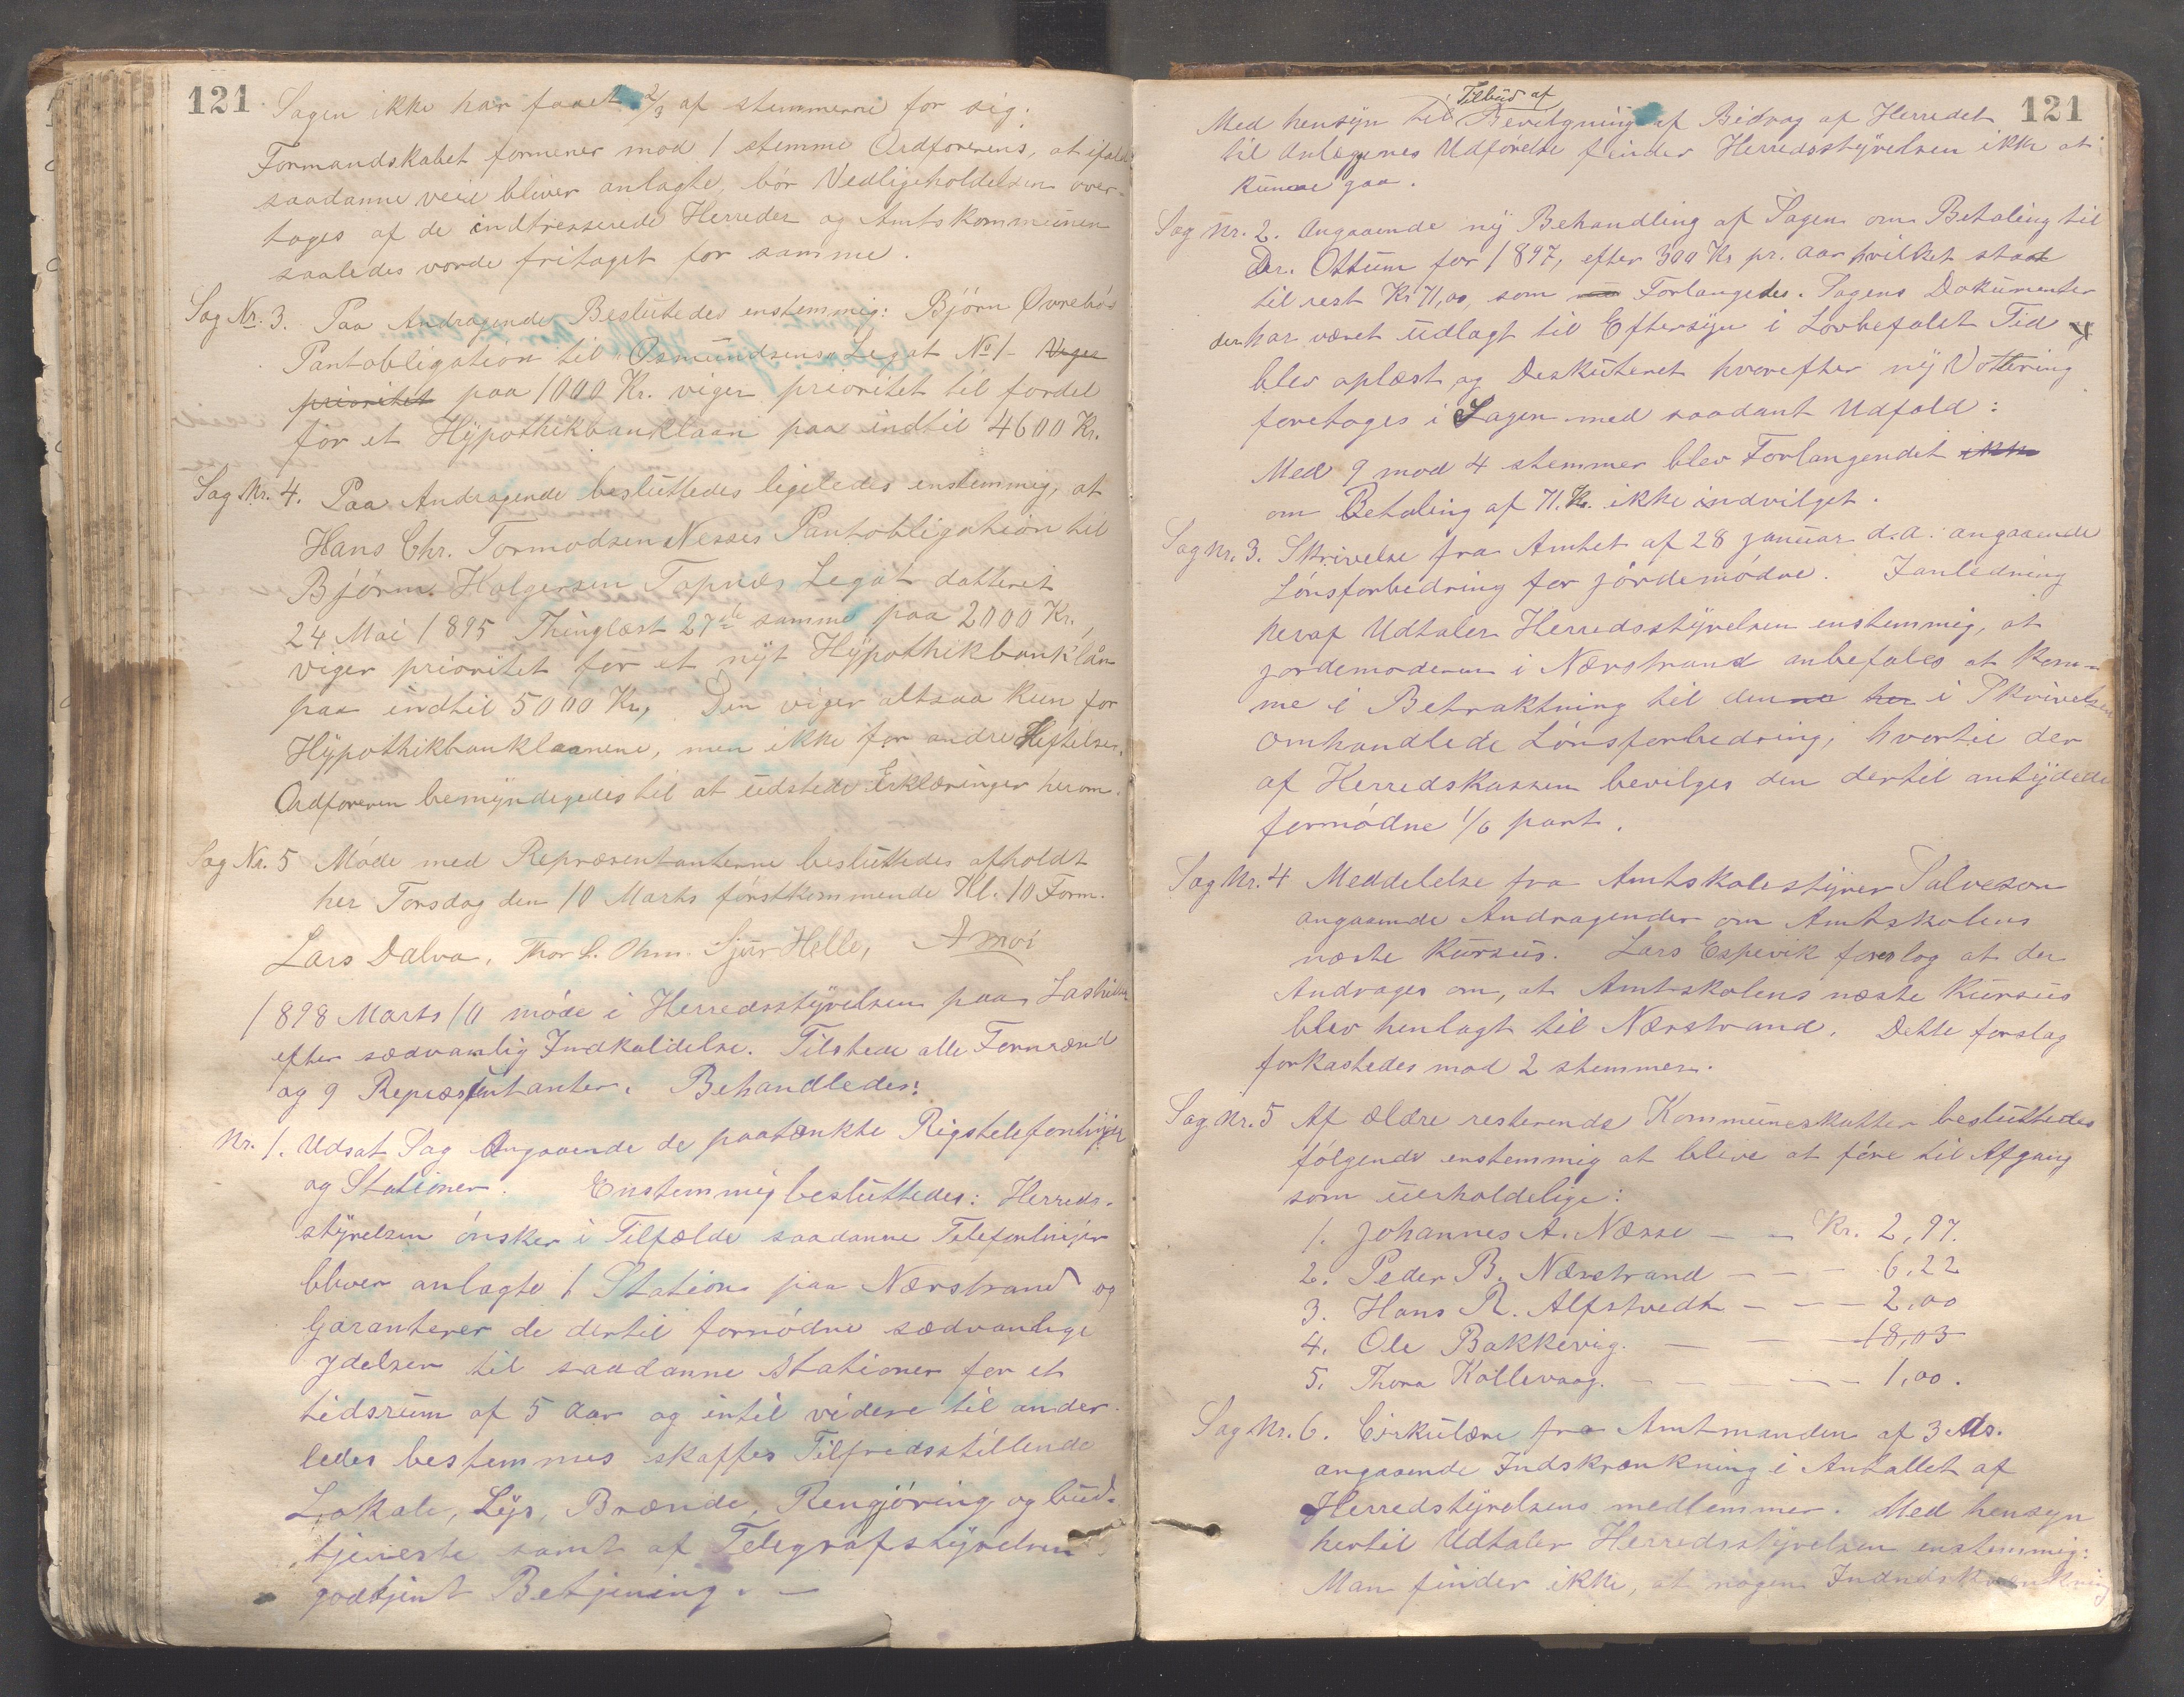 121
Sagen ikke har faaet 2/3 af stemmerne for sig.
Formandskabet formener mod 1 stemme Ordførerens, at ifald
saadanne veie bliver anlagte, bør Vedligeholdelsen over-
tages af de indtresserede Herreder og Amtskommunen
saaledes vorde fritaget for samme.
Sag Nr. 3. Paa Andragende Besluttedes enstemmig: Bjørn Øvrebøs
Pantobligation til Osmundsens Legat No 1 - Viger
prioritet paa 1000 Kr. viger prioritet til fordel
for et Hypothikbanklaan paa indtil 4600 Kr.
Sag Nr. 4. Paa Andragende besluttedes ligeledes enstemmig, at
Hans Chr. Tormodsen Nesses Pantobligation til
Bjørn Holgersen Topnes Legat datteret
24 Mai 1895 Thinglæst 27de samme paa 2000 Kr.,
viger prioritet for et nyt Hypothikbanklån
paa indtil 5000 Kr., Den viger altsaa kun for
Hypothikbanklaanene, men ikke for andre Heftelser.
Ordføreren bemyndigedes til at udstede Erklæringer herom.
Sag Nr. 5 Møde med Repræsentanterne besluttedes afholdt
her Torsdag den 10 Marts førstkommende Kl. 10 Form.
Lars Dalva, Thor L. Ohm. Sjur Helle,
1898 Marts 10 møde i Herredsstyrelsen paa
efter sædvanlig Indkaldelse. Tilstede alle Formænd
og 9 Repræsentanter. Behandledes:
Nr. 1. Udsat Sag Angaaende de paatænkte Rigstelefonlinjer
og Stationer. Enstemmig besluttedes: Herreds-
styrelsen ønsker i Tilfælde saadanne Telefonlinjer
bliver anlagte 1 Station paa Nærstrand og
Garanterer de dertil fornødne sædvanlige
ydelser til saadanne Stationer for et
tidsrum af 5 Aar og intil videre til ander-
ledes bestemmes skaffes Tilfredsstillende
Lokale, Lys, Brænde, Rengjøring og bud-
tjeneste samt af Telegrafstyrelsen
godkjent Betjening. -
121
Med hensyn til Tilbud af Bevilgning af Bidrag af Herredet
til Anlægenes Udførelse finder Herredsstyrelsen ikke at
kunne gaa.
Sag Nr. 2. Angaaende ny Behandling af Sagen om Betaling til
Dr. Ottum for 1897, efter 300 Kr pr. Aar hvilket staar
til rest Kr 71,00, som Forlangedes. Sagens Dokumenter
der har været udlagt til Eftersyn i Lovbefalet Tid
blev oplæst og Deskuteret hvorefter ny Vottering
foretoges i Sagen med saadant Udfald:
Med 9 mod 4 stemmer blev Forlangendet ikke
om Betaling af 71. Kr. ikke indvilget.
Sag Nr. 3. Skrivelse fra Amtet af 28 januar d.a. angaaende
Lønsforbedring for jordemødre. I anledning
heraf Udtaler Herredsstyrelsen enstemmig, at
jordemoderen i Nærstrand anbefales at kom-
me i Betraktning til denne her i Skrivelsen
omhandlede Lønsforbedring, hvortil der
af Herredskassen bevilges den dertil antydede
fornødne 1/6 part.
Sag Nr. 4 Meddelelse fra Amtskolestyrer Salveson
angaaende Andragender om Amtskolens
næste Kursus. Lars Espevik foreslog at der
Andrages om, at Amtskolens næste Kursus
blev henlagt til Nærstrand. Dette forslag
forkastedes mod 2 stemmer.
Sag Nr. 5 Af ældre resterende Kommuneskatter besluttedes
følgende enstemmig at blive at føre til Afgang
som uerholdelige:
1. Johannes A. Næsse - - Kr. 2,97.
2. Peder B. Nærstrand - - - 6,22
3. Hans R. Alfstvedt - - - 2,00
4. Ole Bakkevig. - - - 18,03
5. Thora Kollevaag. - - - - - 1,00.
Sag Nr. 6. Cirkulære fra Amtmanden af 3 ds.
angaaende Indskrænkning i Antallet af
Herredstyrelsens medlemmer. Med hensyn
hertil Udtaler Herredsstyrelsen enstemmig:
Man finder ikke, at nogen Indndskrænkning